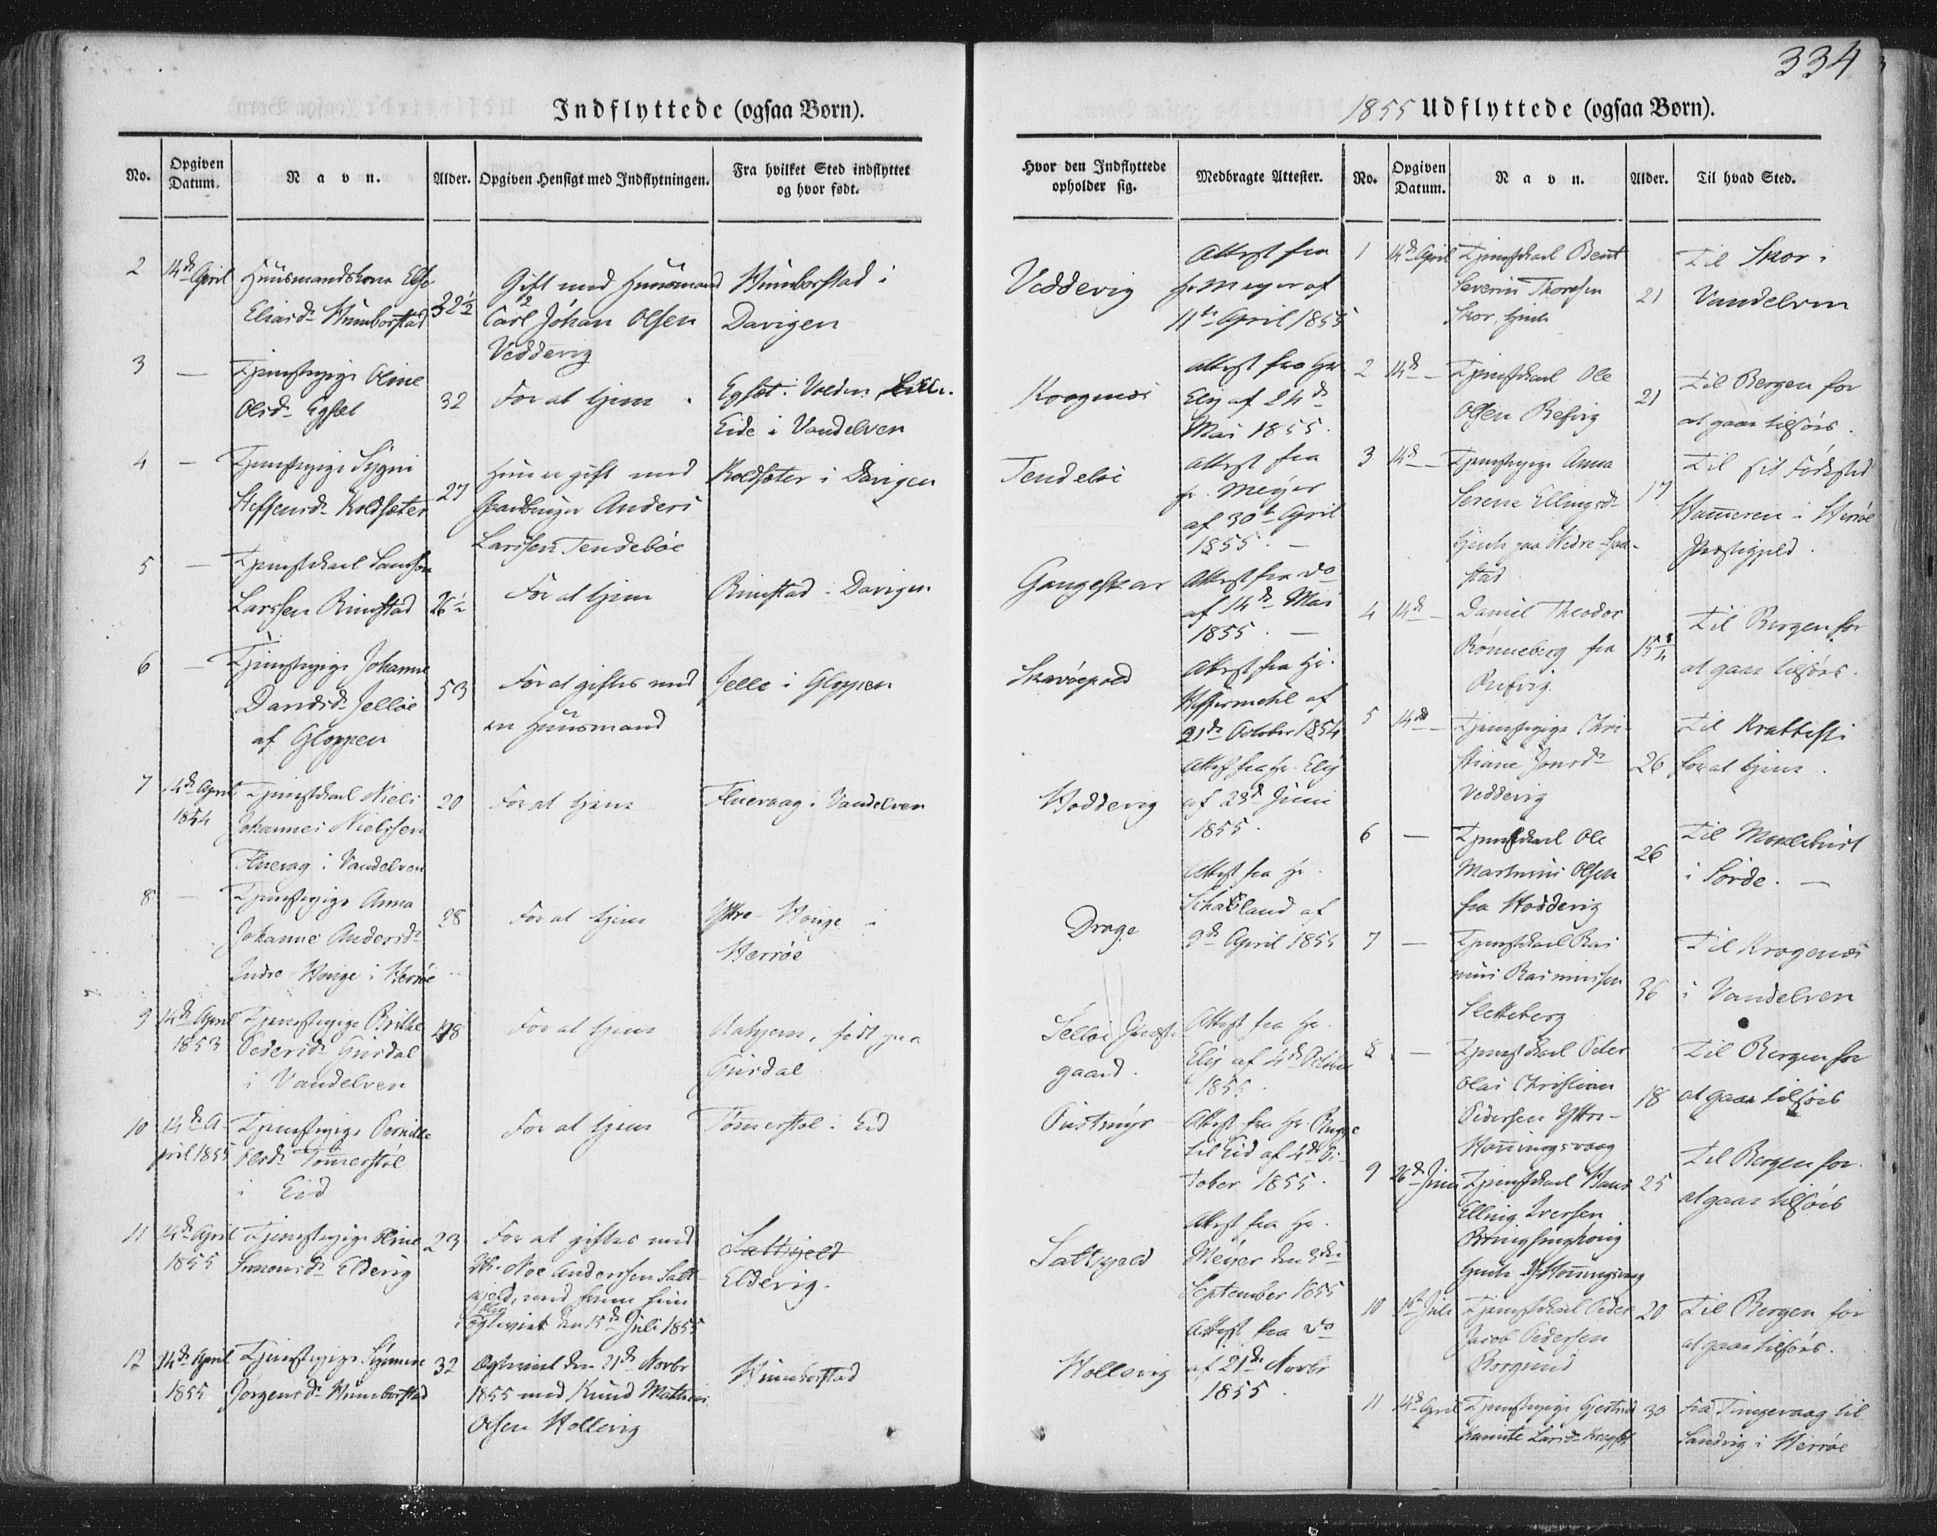 334
Indflyttede (ogsaa Børn).
No.
Opgiven Datum.
Navn.
Alder.
Opgiven Hensigt med Indflytningen.
Fra hvilket Sted indflyttet og hvor født.
Hvor den Indflyttede opholder sig.
Medbragte Attester.
2 14de April Huusmandskone Else
Eliasd. Humborstad
32½
Gift med Huusmand
Carl Johan Olsen
Vedvig
Humborstad i
Davigen
Veddevig
Attest fra
hr Meyer af
11te April 1855
3 — Tjenstepige Oline
Olsd. Egset
32
For at tjene
Egset i Volden
Eide i Vandelven
Kragenæs
Attest fra Hr
Elig af 24de
Mai 1855.
4 — Tjenstepige
Steffensd. Koldsæter
27
Hun er gift med
Gaardbruger Anders
Larssen Tendebøe
Koldsæter i Davigen
Attest fra
hr. Meyer
af 30te April
1855. —
5 — Tjenstekarl
Larssen Rimstad
26½
For at tjene
Rimstad i Davigen
Attest fra do
af 14de Mai
1855. —
6 — Tjenstepige Johanne
Davidsd. Jelløe
af Gloppen
53
For at giftes med
en Huusmand
Jelle i Gloppen
Attest fra Hr.
af
21de October 1854
7 14de April
1854
Tjenstekarl Niels
Johannes Nielssen
Fluevaag i Vandelven
20
For at tjene
Fluevaag i Vandelven
Hoddevig
Attest fra hr. Elig
af 23de Juni
1855.
8 — Tjenstepige Anna
Johanne Andersd.
Indre Houge i Herrøe
28
For at tjene
Ytre Houge i
Herrøe
Drage
Attest fra hr.
af
9de April 1855
9 14de April
1853
Tjenstepige Brithe
Pedersd. Gursdal
i Vandelven
48
For at tjene
født paa
Gursdal
Selløe Præste-
gaard.
Attest fra hr.
Elig af 4de October
1855.
10 14de A-
pril 1855
Tjenstepige Pernille
Olsd. Tømerstøl
i Eid
For at tjene
Tømerstøl i Eid
Attest fra hr
til Eid af 4de Oc-
tober 1855.
11 14de April
1855
Tjenstepige Oline
Simonsd. Eldevig
23
For at giftes med
Noe Anderssen Salt-
kjeld, med hvem hun
blev
egteviet den 15de Juli 1855
Saltkjeld
Eldevig.
Saltkjeld
Attest fra hr.
Meyer den 3de
September 1855
12 14de April
1855
Tjenstepige
Jørgensd. Humborstad
32
Egteviet den 21de Novbr
1855 med Knud Mathias
Olsen Hollevig
Humborstad
Hollevig
Attest fra do
af 21de Novbr
1855.
1855 Udflyttede (ogsaa Børn).
No.
Opgiven Datum.
Navn.
Alder.
Til hvad Sted.
1 14de April Tjenstekarl Bent
Severin Thoresen
Skor
21
Til Skor i
Vandelven
2 14de — Tjenstekarl Ole
Olsen Refvig
21
Til Bergen for
at gaae tilsøes.
3 14de — Tjenstepige Anna
Serene Ellingsd.
tjente paa Nedre
stad
17
Til sit Fødested
Hameren i Herrøe
Præstegjeld.
4 14de — Daniel Theodor
Rønneberg fra
Refvig
15¾
Til Bergen for
at gaae tilsøes.
5 14de — Tjenstepige Chri-
stiane Jonsd.
Veddevig
26
Til Krattesti
for at tjene.
6 — Tjenstekarl Ole
Martinus Olsen
fra Hoddevig
26
Til
i Førde. —
7 — Tjenstekarl Ras-
mus Rasmussen
Sletteberg
36
Til Kragenæs
i Vandelven
8 — Tjenstekarl Peter
Olai Christian
Pedersen Ytre-
Honningsvaag
18
Til Bergen for
at gaae tilsøes
9 26de Juni Tjenstekarl Hans
Elling Iversen
25
Til Bergen for
at gaae tilsøes
10 1ste Juli Tjenstekarl Peder
Jacob Pedersen
Borgund
20
Til Bergen for
at gaae tilsøes.
11 14de April Tjenstepige Gjertrud
30
fra til
Sandvig i Herrøe